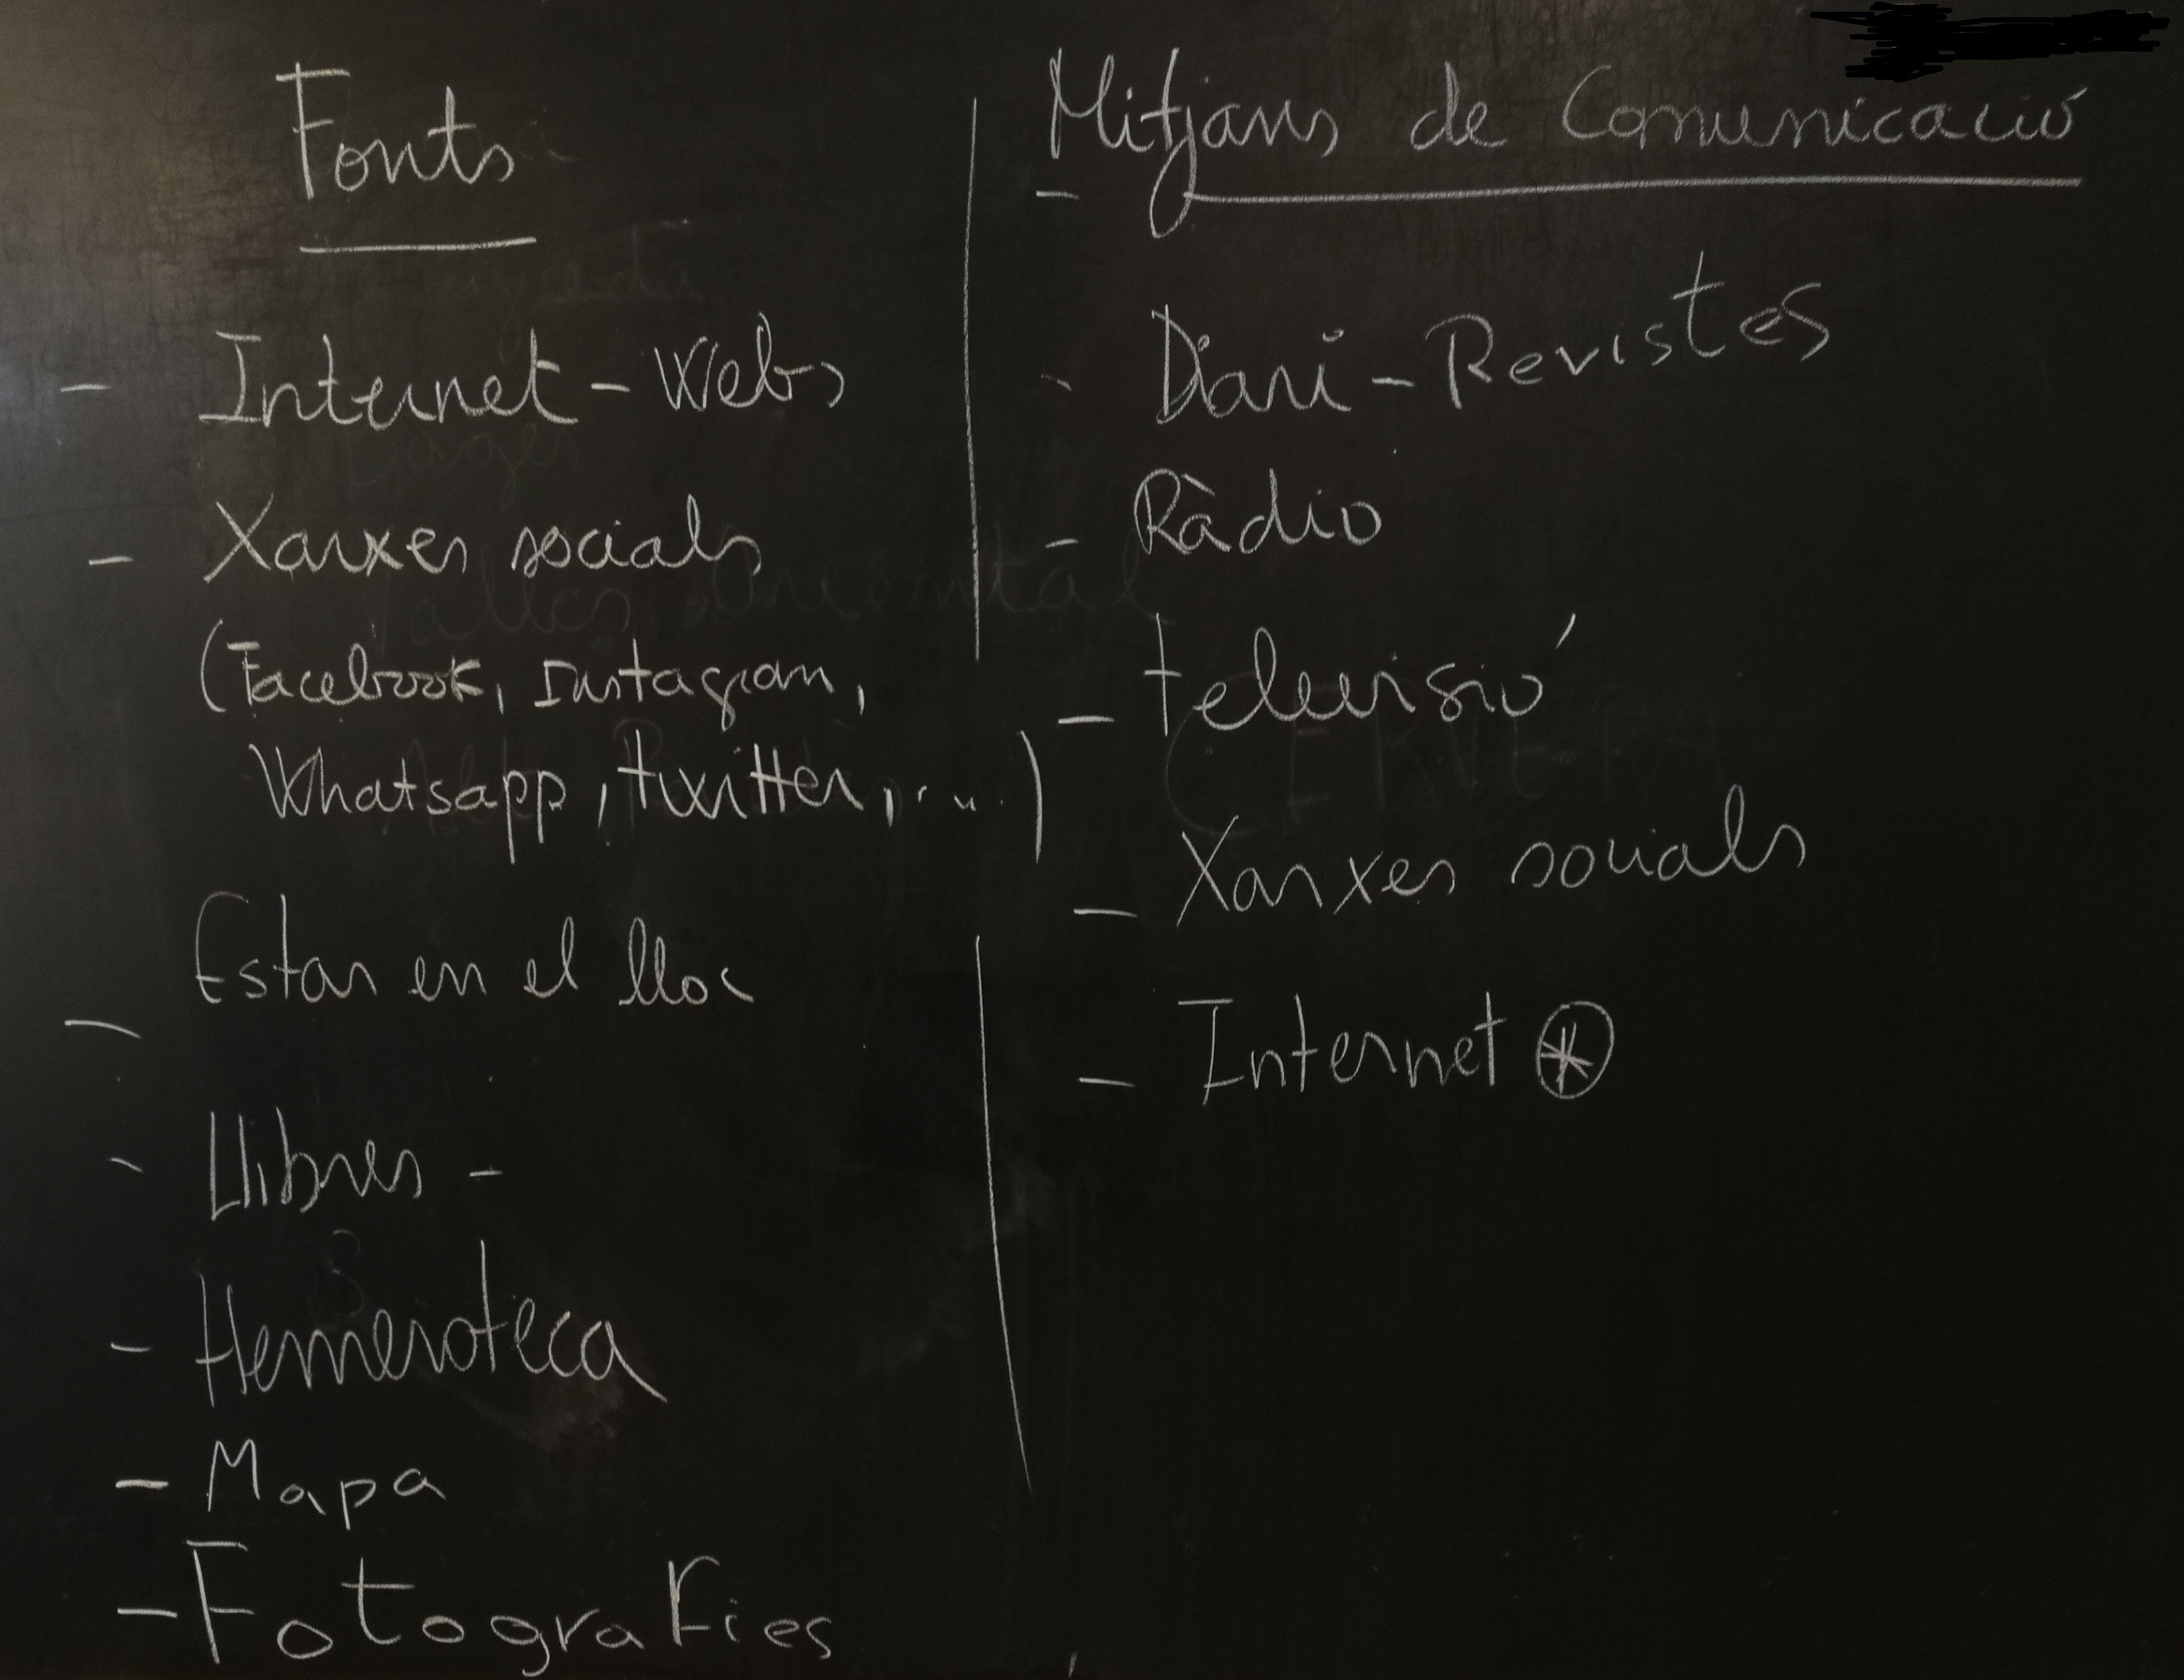 Fonts
- Internet - Webs
- Xarxes socials
(Facebook, Instagram,
Whatsapp, twitter, ...)
- Estar en el lloc
- Llibres -
- Hemeroteca
- Mapa
- Fotografies
Mitjans de Comunicació
- Diari - Revistes
- Ràdio
- televisió
- Xarxes socials
- Internet *